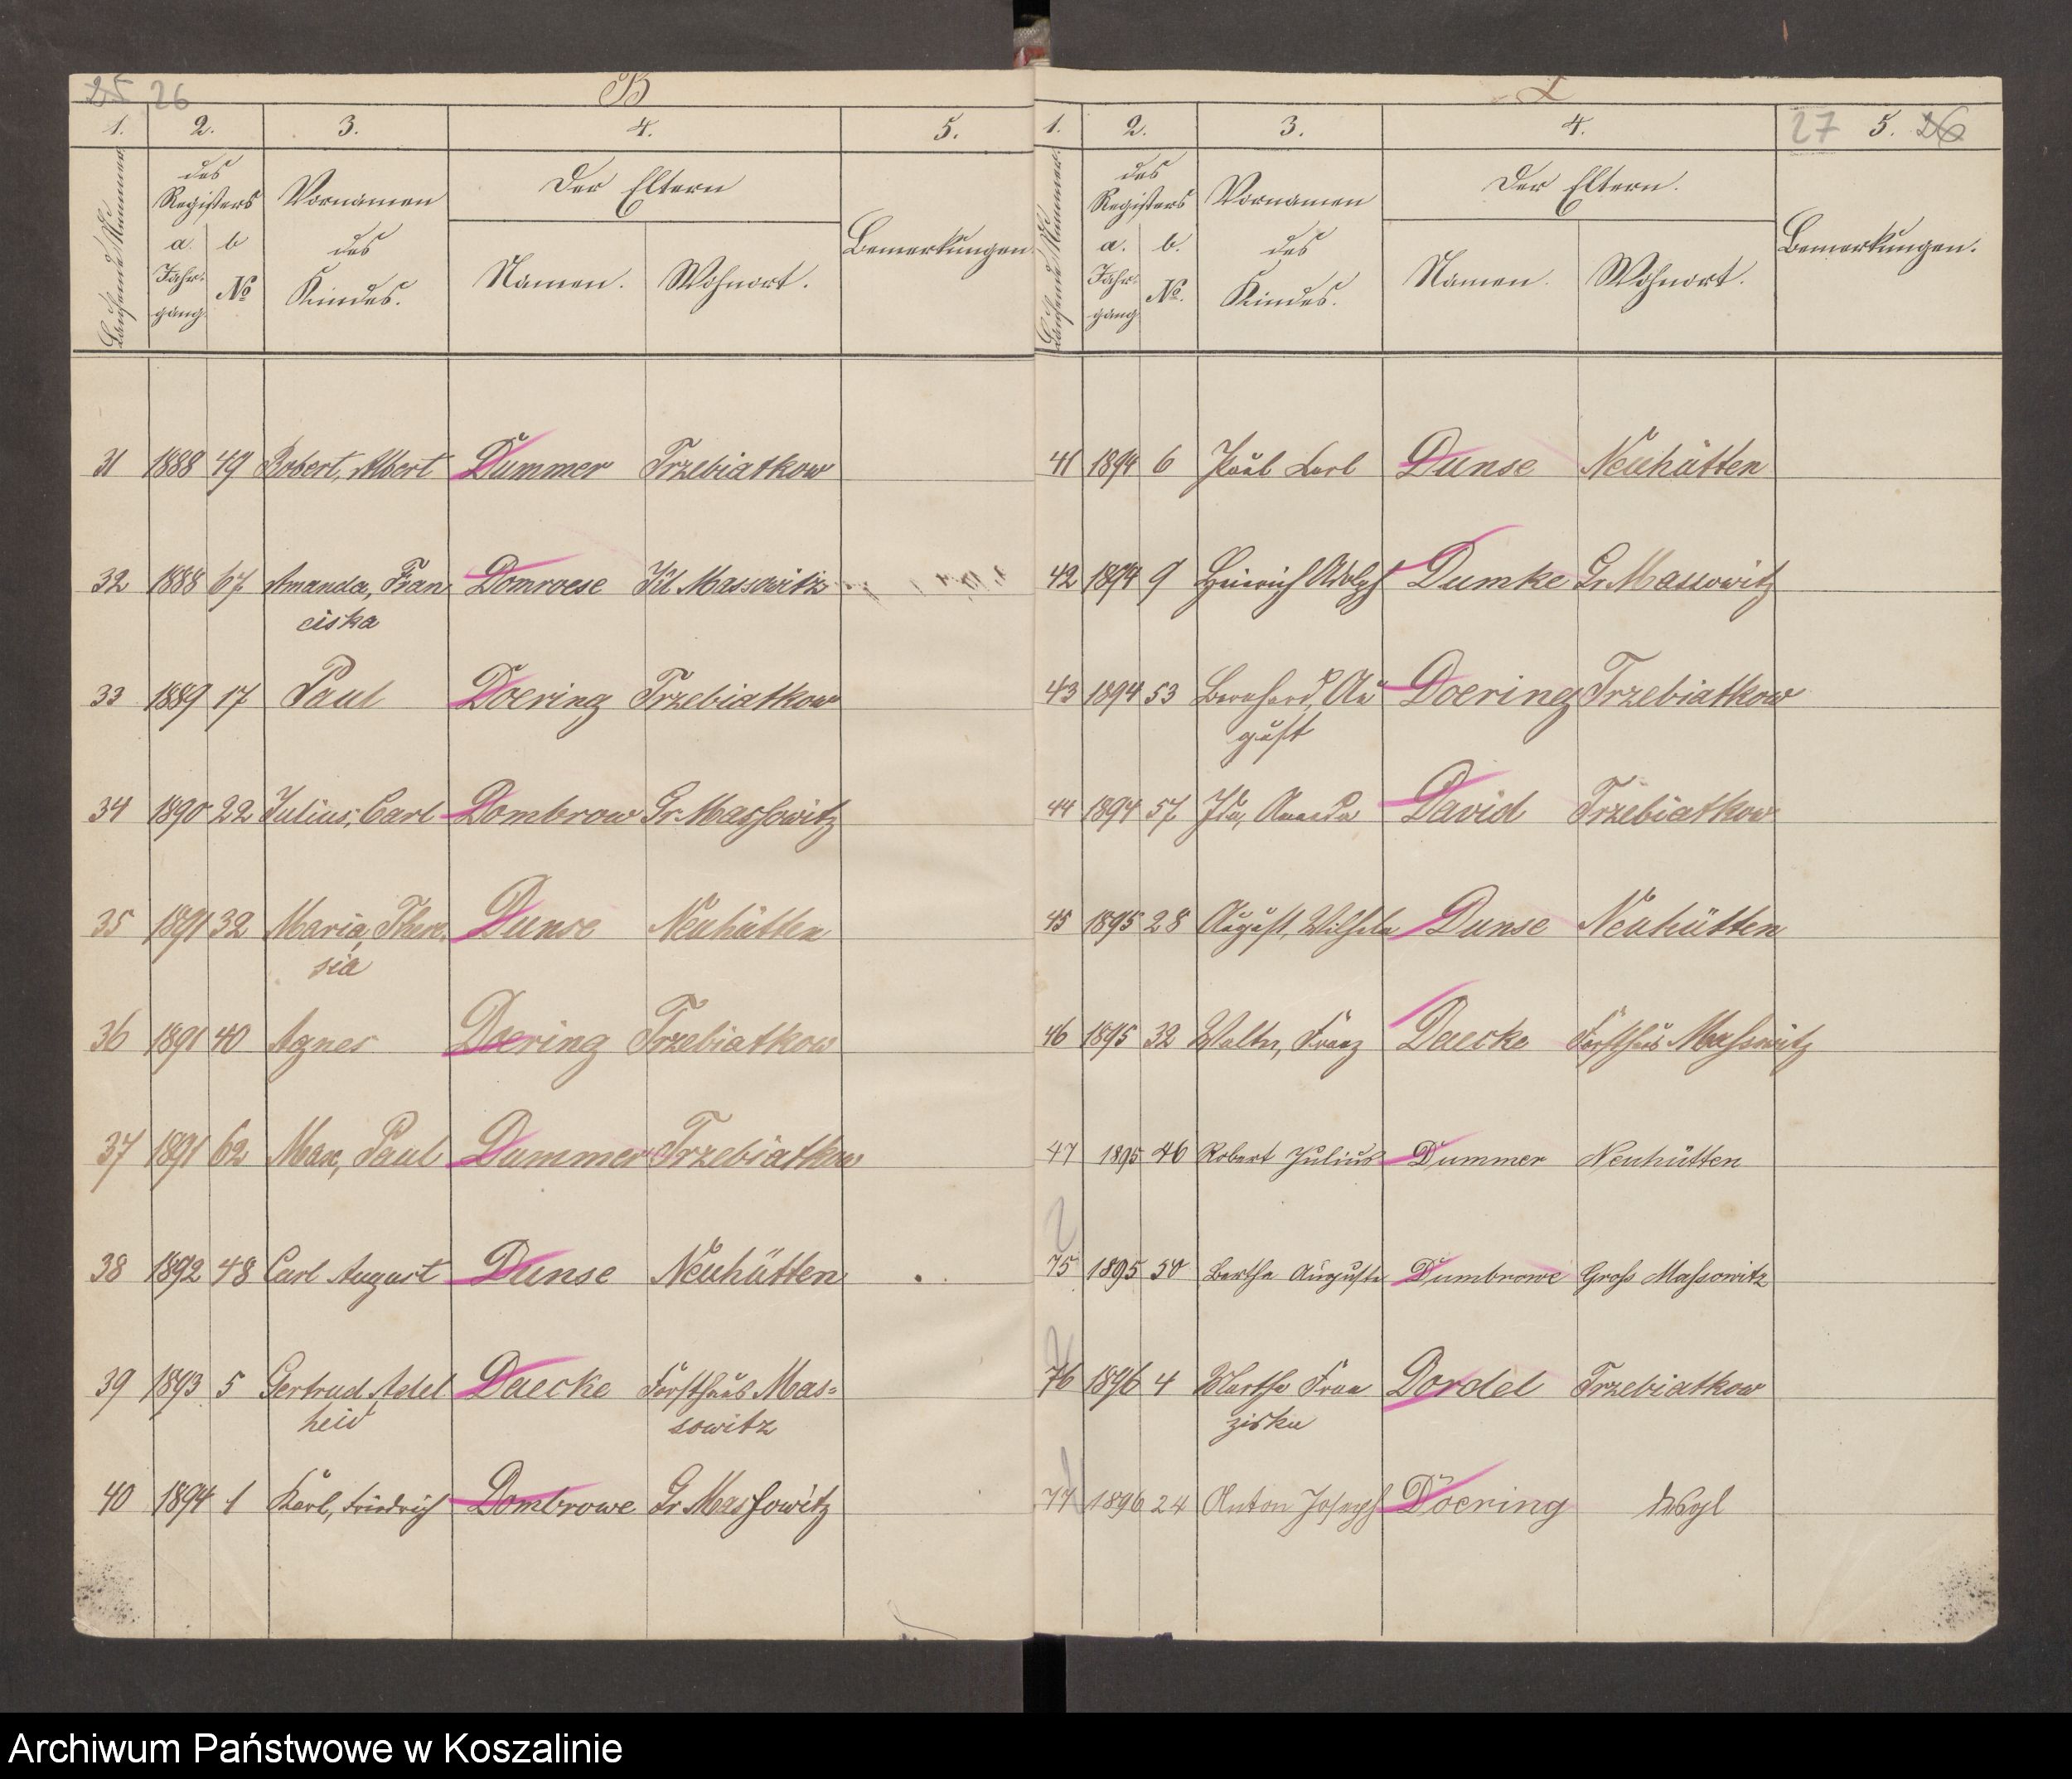 25 26
1. 2. 3. 4. 5.
Laufende Nummer
des Registers
a. Jahrgang
b №
Vornamen des Kindes.
Der Eltern
Namen. Wohnort.
Bemerkungen
31 1888 49 Robert, Albert Dummer Trzebiatkow
32 1888 67 Amanda, Fran Domroese Kl Massowitz
ciska
33 1889 17 Paul Doering Trzebiatkow
34 1890 22 Julius, Carl Dombrow Gr. Massowitz
35 1891 32 Maria, There- Dunse Neuhütten
sia
36 1891 40 Agnes Doering Trzebiatkow
37 1891 62 Max, Paul Dummer Trzebiatkow
38 1892 48 Carl August Dunse Neuhütten
39 1893 5 Gertrud, Adel Daecke Forsthaus Mas=
heid sowitz
40 1894 1 Karl, Friedrich Dombrowe Gr Massowitz
1. 2. 3. 4. 27 5. 26
Laufende Nummer
des Registers
a. Jahrgang
b. №.
Vornamen des Kindes.
Der Eltern.
Namen. Wohnort.
Bemerkungen.
41 1894 6 Paul Carl Dunse Neuhütten
42 1894 9 Heinrich Adolph Dumke Gr. Massowitz
43 1894 53 Bernhard, Au Doering Trzebiatkow
gust
44 1894 57 Ida, David Trzebiatkow
45 1895 28 August, Wilhelm Dunse Neuhütten
46 1895 32 Walter, Franz Daecke Forsthaus Massowitz
47 1895 46 Robert Julius Dummer Neuhütten
75 1895 50 Bertha Auguste Dumbrowe Gross Massowitz
76 1896 4 Martha Fran Dordel Trzebiatkow
ziska
77 1896 24 Anton Joseph Doering
Archiwum Państwowe w Koszalinie